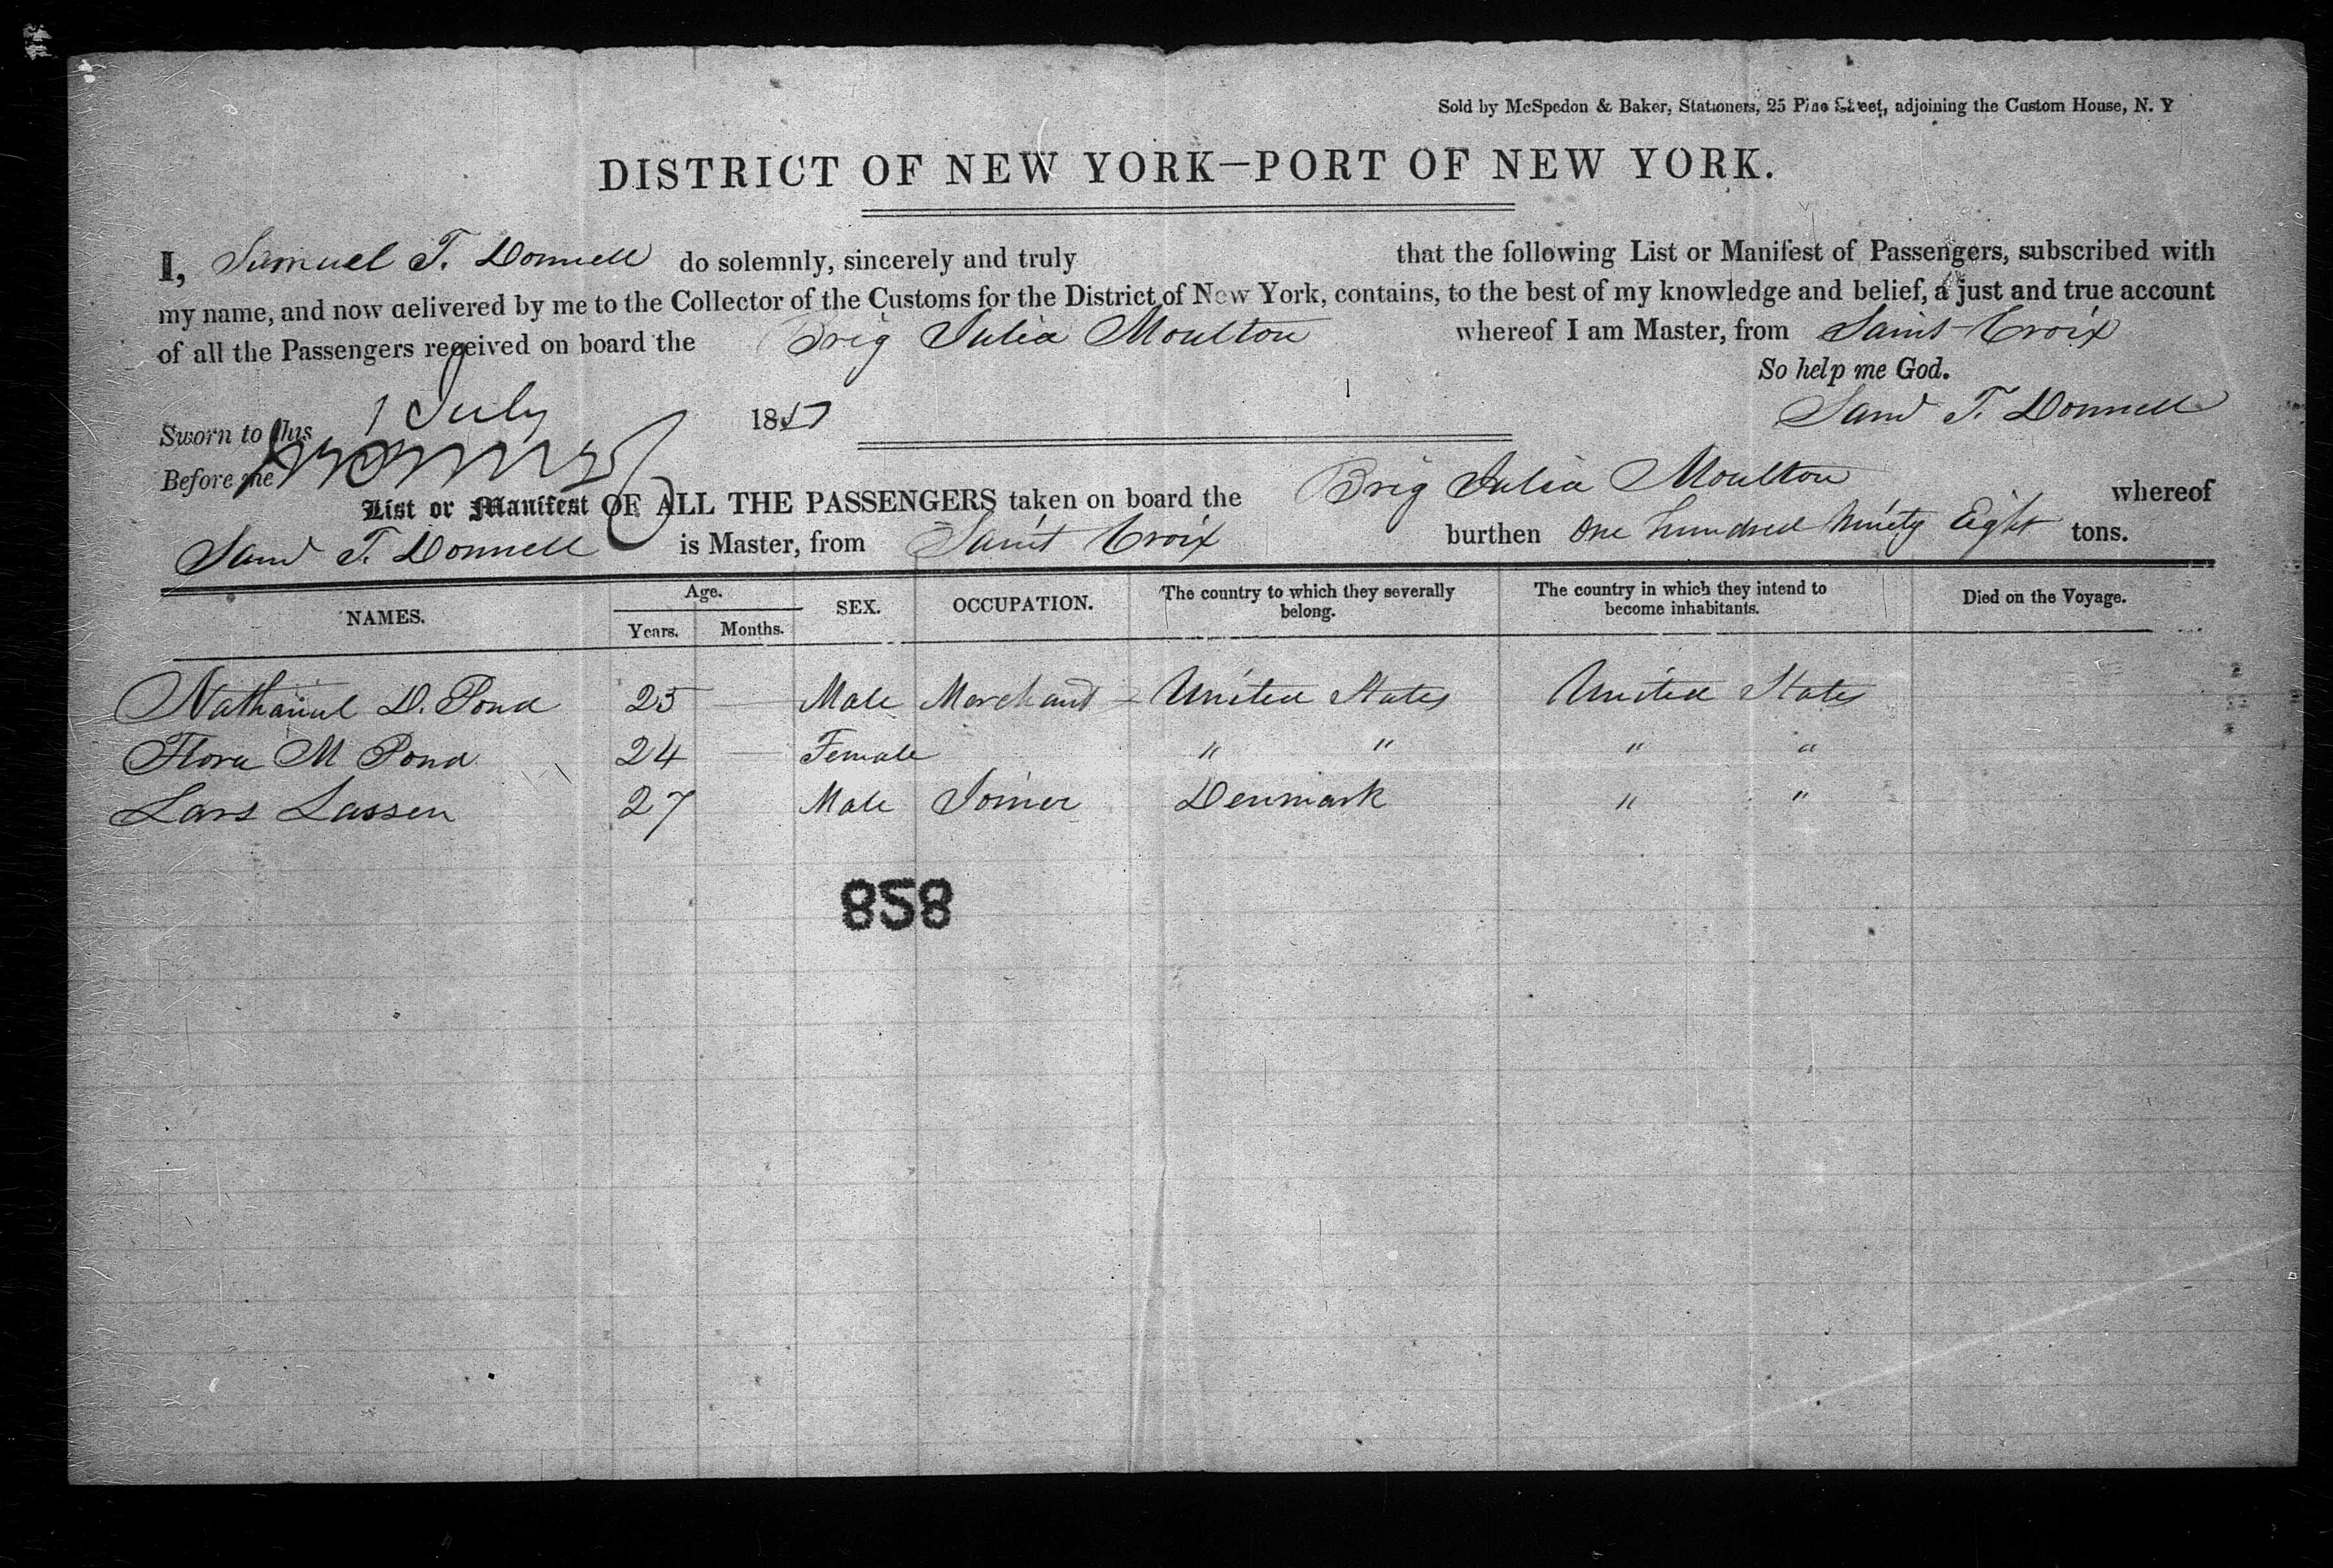 Sold by McSpedon & Baker, Stationers, 25 Pine Street, adjoining the Custom House, N. Y
DISTRICT OF NEW YORK—PORT OF NEW YORK.
I, Samuel T. Donnell do solemnly, sincerely and truly that the following List or Manifest of Passengers, subscribed with
my name, and now delivered by me to the Collector of the Customs for the District of New York, contains, to the best of my knowledge and belief, a just and true account
of all the Passengers received on board the Brig Julia Moulton whereof I am Master, from Saint Croix
So help me God.
Sworn to this 1 July 1857 Saml T. Donnell
Before me
List or Manifest OF ALL THE PASSENGERS taken on board the Brig Julia Moulton whereof
Saml T. Donnell is Master, from Saint Croix burthen One hundred Ninety Eight tons.
NAMES. Age. Years. Months. SEX. OCCUPATION. The country to which they severally belong. The country in which they intend to become inhabitants. Died on the Voyage.
Nathaniel D. Pond 25 — Male Merchant - United States United States
Flora M Pond 24 — Female " " " "
Lars Lassen 27 Male Joiner Denmark " "
858